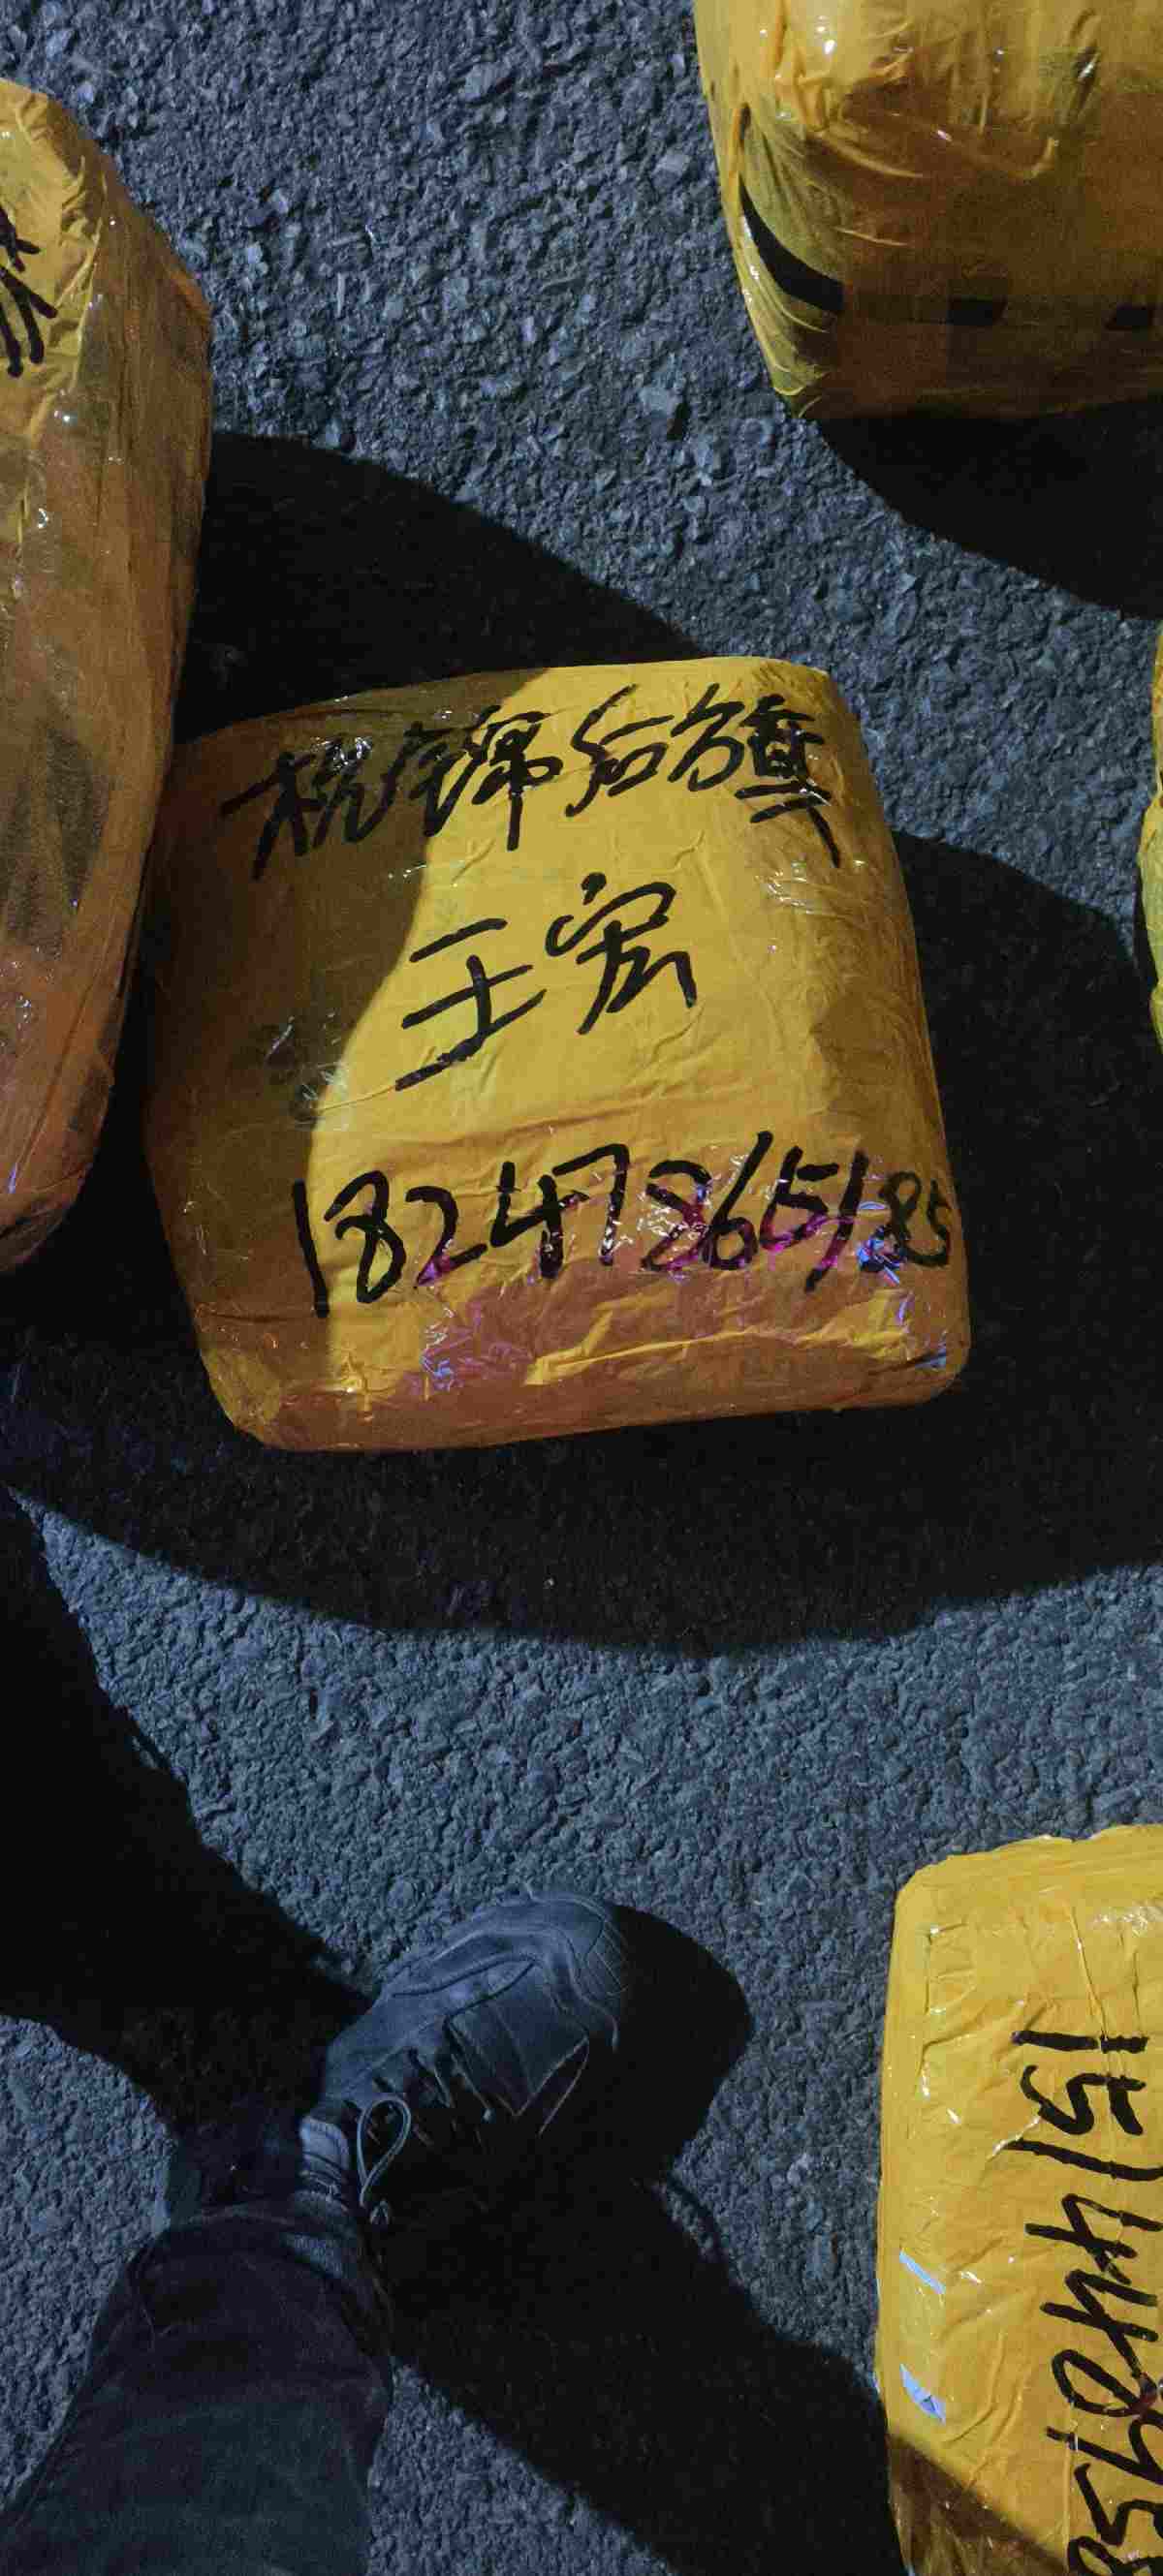 杭锦后旗
王宏
18247865185
15144075